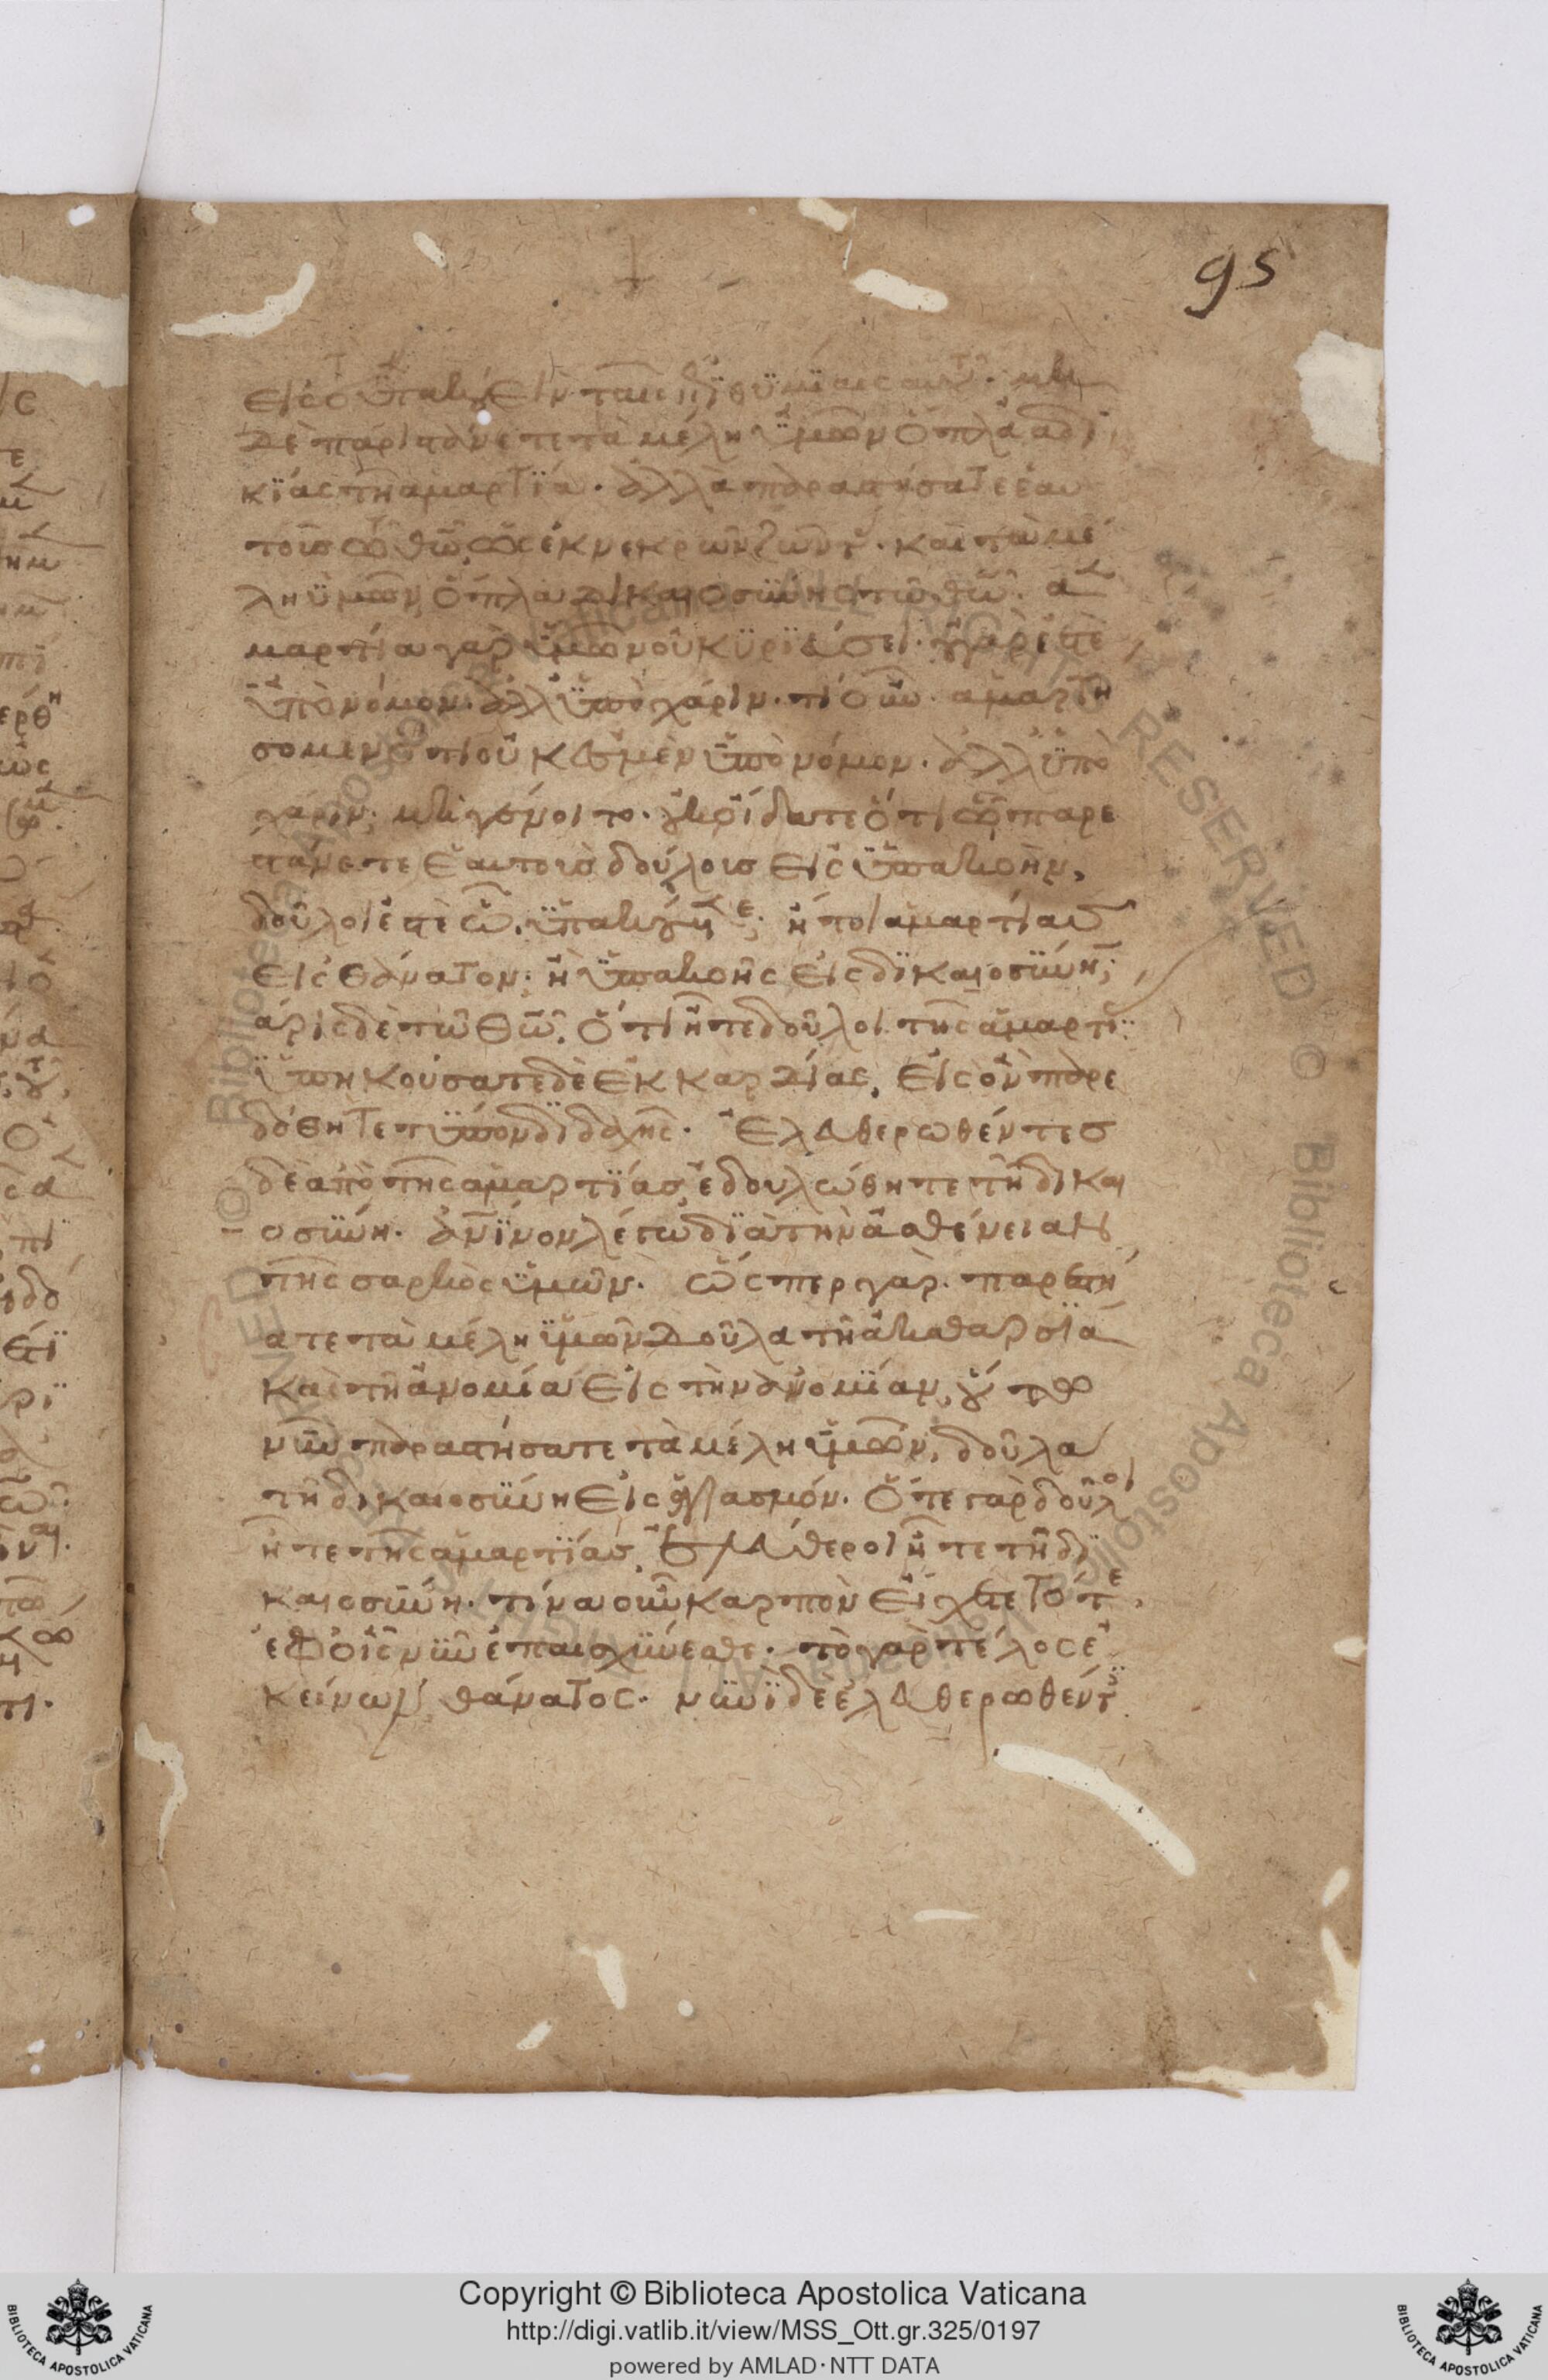 95
εἰς τὸ ὑπακούειν ταῖς ἐπιθυμίαις αυτοῦ. μη
δὲ παριστάνετε τὰ μέλη ὑμῶν ὅπλα ἀδι
κίας τῆ ἁμαρτία. ἀλλὰ παραστήσατε ἑαυ
τοῖς θῶ, ὡς ἐκ νεκρῶν ζῶντ. καὶ τὰ μέ
λη ὑμῶν ὅπλα δικαιοσύνης τῶ θῶ. ἁ
μαρτία γὰρ ὑμῶν οὐ κυριεύσει. οὐ γὰρ ἐστὲ
ὑπὸ νόμον. ἀλλ ὑπὸ χάριν. τί οὖν. αμαρτη
σομεν ὅτι οὐκ ἐσμὲν ὑπὸ νόμον. ἀλλ ὑπὸ
χάριν; μὴ γένοιτο. οὐκ οἴδατε ὅτι ὧ παρι
στάνετε ἑαυτοις δούλοις εἰς ὑπακοὴν,
δοῦλοι ἐστὲ ὧ ὑπακούετε; ἤτοι ἁμαρτίας
εἰς θάνατον. ἢ ὑπακοῆς εἰς δικαιοσύνην;
χάρις δὲ τῶ θῶ. ὅτι ἦτε δοῦλοι τῆς ἁμαρτί
ὑπηκούσατε δὲ ἐκ καρδίας, εἰς ὃν παρε
δόθητε τύπον διδαχῆς. ἐλευθερωθέντες
δὲ ἀπὸ τῆς ἁμαρτίας, ἐδουλώθητε τῆ δικαι
οσύνη. ἀνϊνον λέγω δϊὰ τὴν ἀσθένειαν
τῆς σαρκὸς ὑμῶν. ὥσπερ γὰρ. παρεστή
σατε τὰ μέλη ὑμῶν δοῦλα τῆ ἀκαθαρσία
καὶ τῆ ἀνομία εἰς τὴν ἀνομίαν, οὕτω
νῦν παραστήσατε τὰ μέλη ὑμῶν, δοῦλα
τῆ δικαιοσύνη εἰς ἁγιασμόν. ὅτε γὰρ δοῦλοι
ἦτε τῆς ἁμαρτίας, ἐλεύθεροι ἦτε τῆ δι
καιοσύνη. τίνα οὖν καρπὸν εἴχετε τότε,
ἐφ οἷς νῦν ἐπαισχύνεσθε. τὸ γὰρ τέλος ἐ
κείνων θάνατος. νυνῒ δὲ ἐλευθερωθέντ
Copyright © Biblioteca Apostolica Vaticana
http://digi.vatlib.it/view/MSS_Ott.gr.325/0197
powered by AMLAD·NTT DATA
BIBLIOTECA APOSTOLICA VATICANA
BIBLIOTECA APOSTOLICA VATICANA